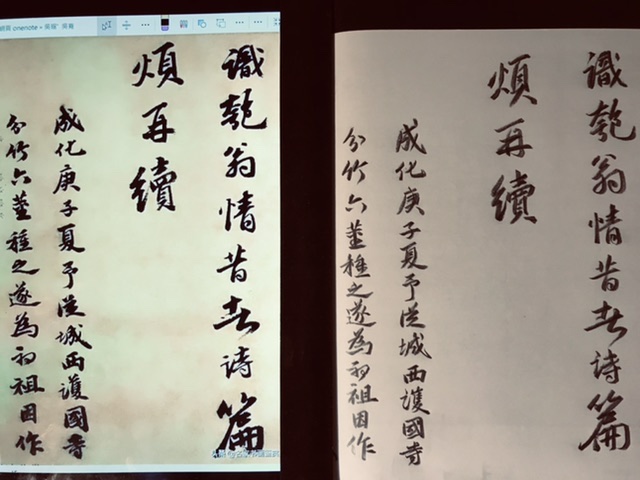 onenote
識匏翁情昔詩篇
煩再續
成化庚子夏予從城西護國寺
分竹六莖種之遂為初祖因作
識匏翁情昔詩篇
煩再續
成化庚子夏予從城西護國寺
分竹六莖種之遂為初祖因作